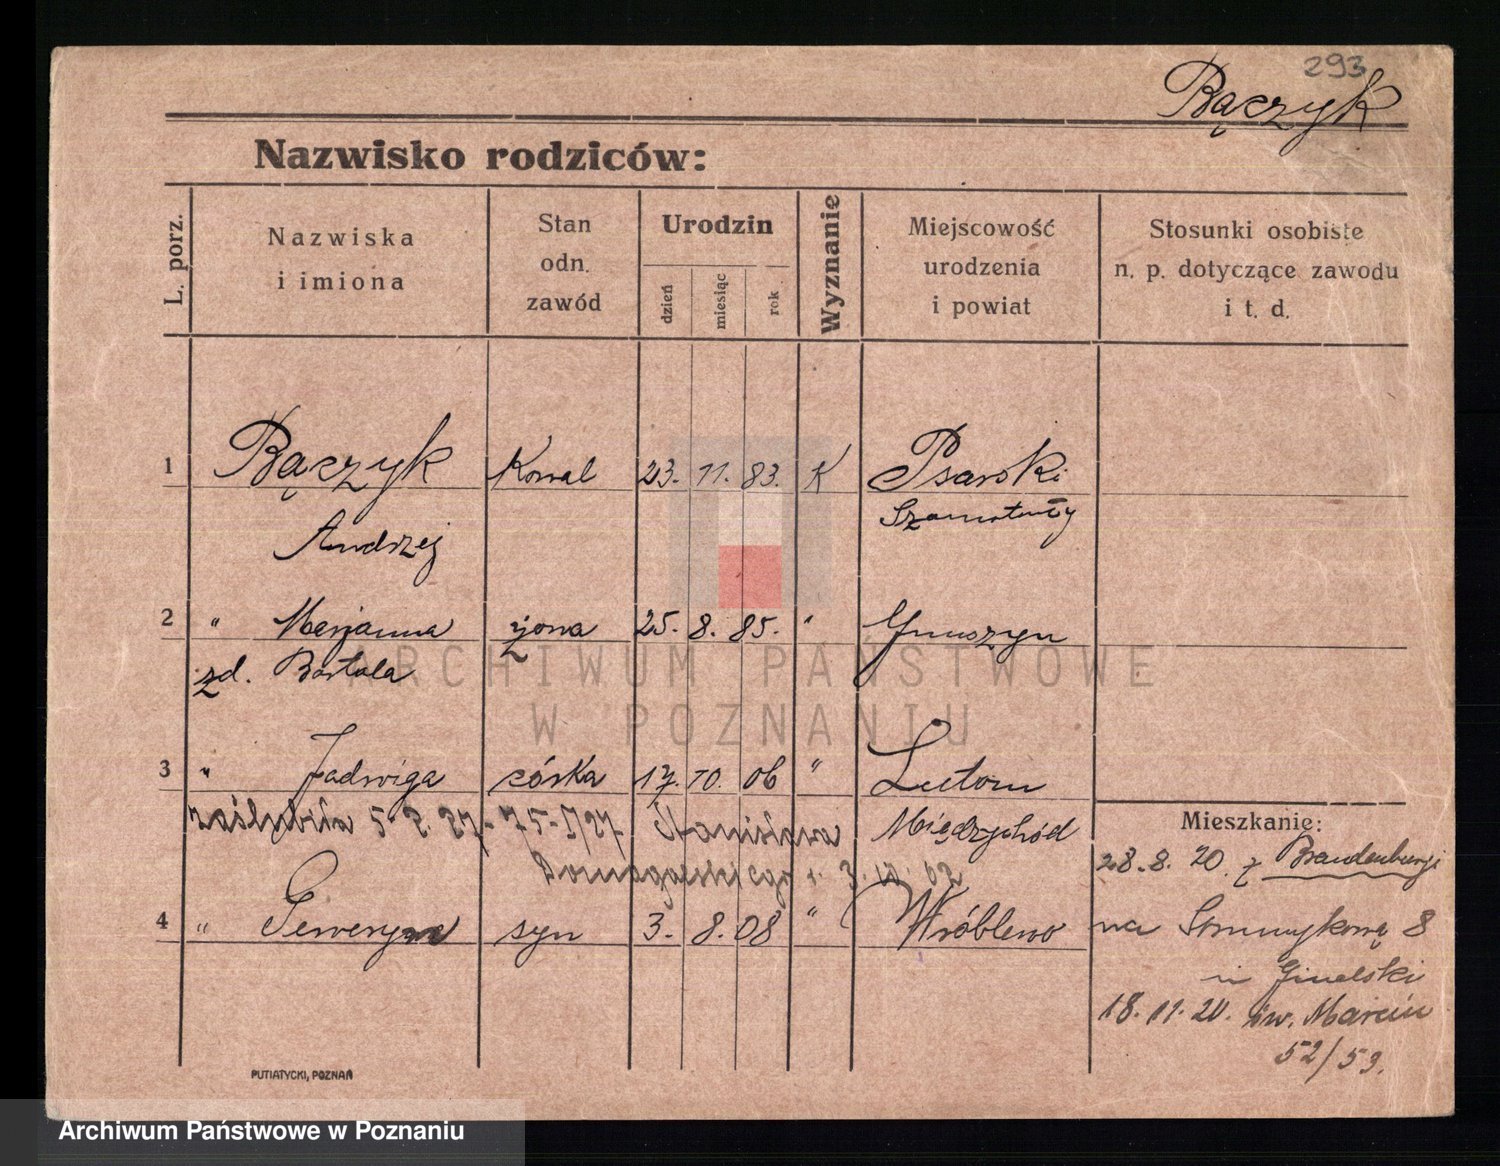 293
Bączyk
Nazwisko rodziców:
L. porz.
Nazwiska
i imiona
Stan
odn.
zawód
Urodzin
dzień
miesiąc
rok
Wyznanie
Miejscowość
urodzenia
i powiat
Stosunki osobiste
n. p. dotyczące zawodu
i t. d.
1 Bączyk Kowal 23. 11. 83. K Psarski
Andrzej Szamotuły
2 " Marjanna żona 25. 8. 85. "
zd. Bartola
3 " Jadwiga córka 17. 10. 06 " Lutom
zaślubiła Stanisława Międzychód
4 " Seweryn syn 3. 8. 08 " Wróblewo
Mieszkanie:
28. 8. 20. z Brandenburgi
na Strumykową 8
18. 11. 20. św. Marcin
52/53.
PUTIATYCKI, POZNAŃ
ARCHIWUM PAŃSTWOWE
W POZNANIU
Archiwum Państwowe w Poznaniu